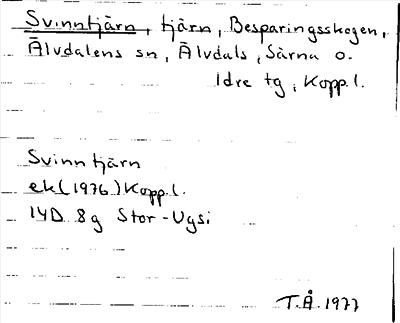 Svinntjärn, tjärn, Besparingsskogen,
Älvdalens sn, Älvdals, Särna o.
Idre tg, Kopp.l.
Svinntjärn
ek (1976) Kopp.l.
14D 8g Stor-Ugsi
T.Å. 1977